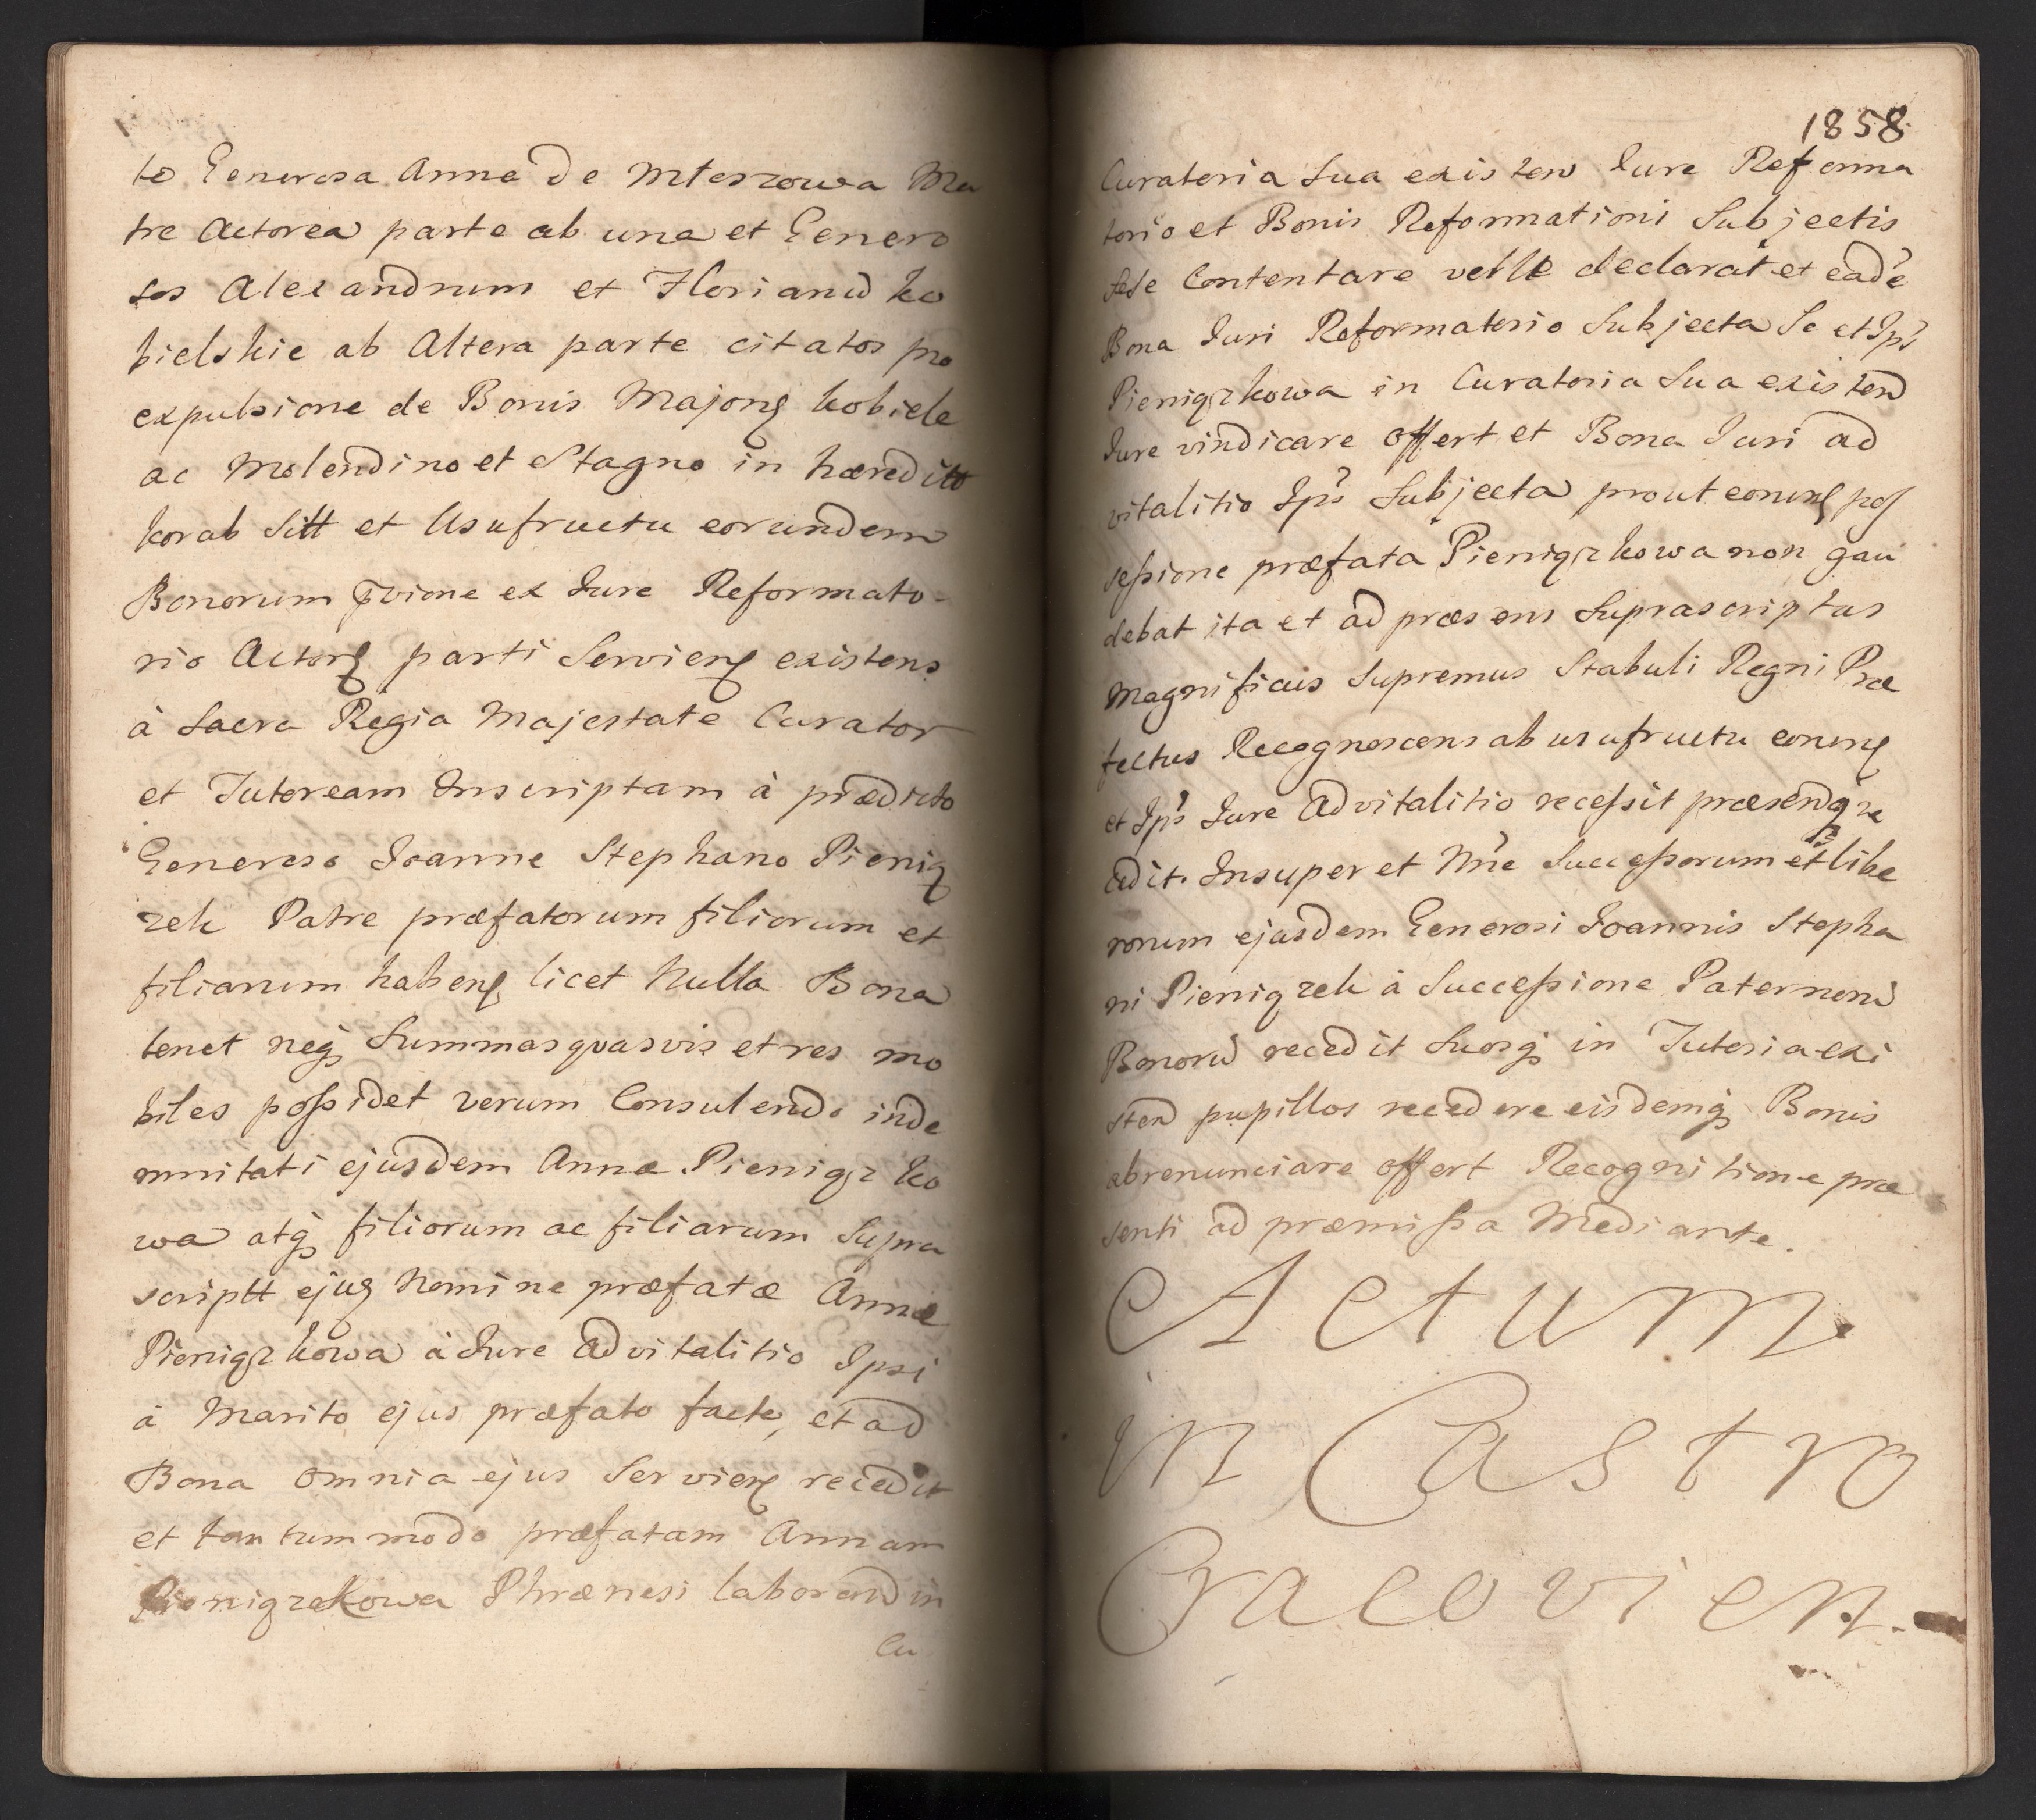 to Generosa Anna de Mteszowa Ma
tre Actorea parte ab una et Genero
sos Alexandrum et Florianũ Ko
bielskie ab Altera parte citatos pro
expulsione de Bonis Majorꝭ Kobiele
ac Molendino et Stagno in hæreditt
Korab Sitt et Usufructu eorundem
Bonorum p̃vione ex Jure Reformato-
rio Actorꝭ parti Servienꝭ existens
à Sacra Regia Majestate Curator
et Tutoream Inscriptam à prædicto
Generoso Joanne Stephano Pienią
zek Patre præfatorum filiorum et
filiarum habenꝭ licet Nulla Bona
tenet neqꝫ Summas qvasvis et res mo
biles possidet verum Consulendo inde
mnitati ejusdem Annæ Pieniązko
wa atqꝫ filiorum ac filiarum Supra
scriptt ejuꝭ Nomine præfatæ Annæ
Pieniązkowa à Jure Advitalitio Ipsi
à Marito ejus præfato facto, et ad
Bona omnia ejus Servienꝭ recedit
et tantummodo præfatam Annam
Pieniązekowa Phrænesi laborend in
Cu
1858
Curatoria Sua existen Jure Reforma
torio et Bonis Reformationi Subjectis
sese Contentare velle declarat et eadẽ
Bona Juri Reformatorio Subjecta Se et Ips̃
Pieniązkowa in Curatoria Sua existend
Jure vindicare offert et Bona Juri ad
vitalitio Ips̃ Subjecta prout eorumꝭ pos
sessione præfata Pieniązkowa non gau
debat ita et ad præsens Suprascriptus
Magnificus Supremus Stabuli Regni Præ
fectus Recognoscens ab usufructu eorumꝭ
et Ips̃ Jure Advitalitio recessit præsendqꝫ re
cedit. Insuper et Nñe Successorum et libe
rorum ejusdem Generosi Joannis Stepha
ni Pieniązek à Successione Paternorũ
Bonorũ recedit Suosqꝫ in Tutoria exi
stend pupillos recedere eisdemqꝫ Bonis
abrenunciare offert Recognitione præ
senti ad præmissa Mediante.
Actum
in Castro
Cracovien.